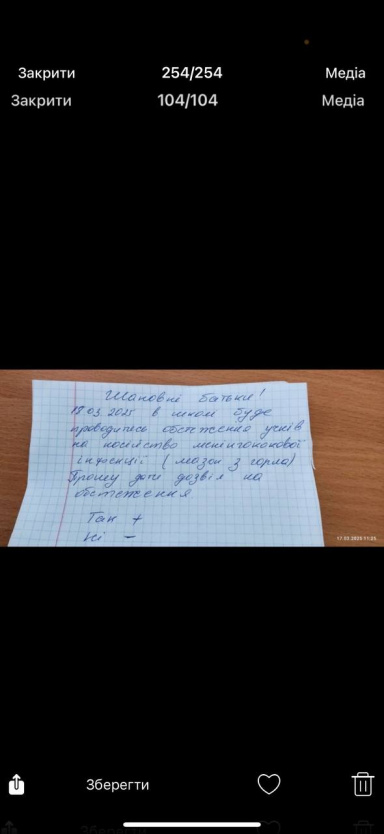 Закрити 254/254 Медіа
Закрити 104/104 Медіа
Шановні батьки!
18.03.2025 в школі буде
проводитись обстеження учнів
на носійство менінгококової
інфекції (мазок з горла)
Прошу дати дозвіл на
обстеження
Так +
Ні −
17.03.2025 11:25
Зберегти